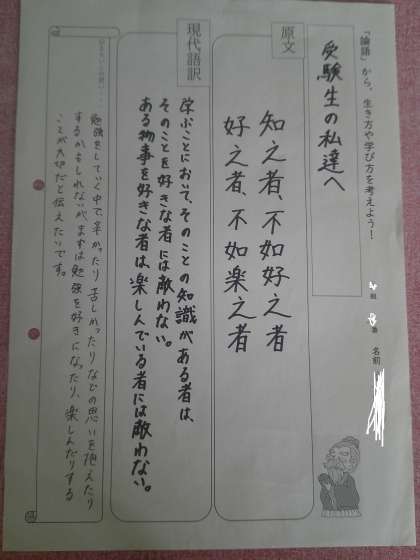 『論語』から、生き方や学び方を考えよう！
組
番
名前
受験生の私達へ
原文
知之者、不如好之者
好之者、不如楽之者
現代語訳
学ぶことにおいて、そのことの知識がある者は、
そのことを好きな者には敵わない。
ある物事を好きな者は、楽しんでいる者には敵わない。
勉強をしていく中で、辛かったり苦しかったりなどの思いを抱えたり
するかもしれないが、まずは勉強を好きになったり、楽しんだりする
ことが大切だと伝えたいです。